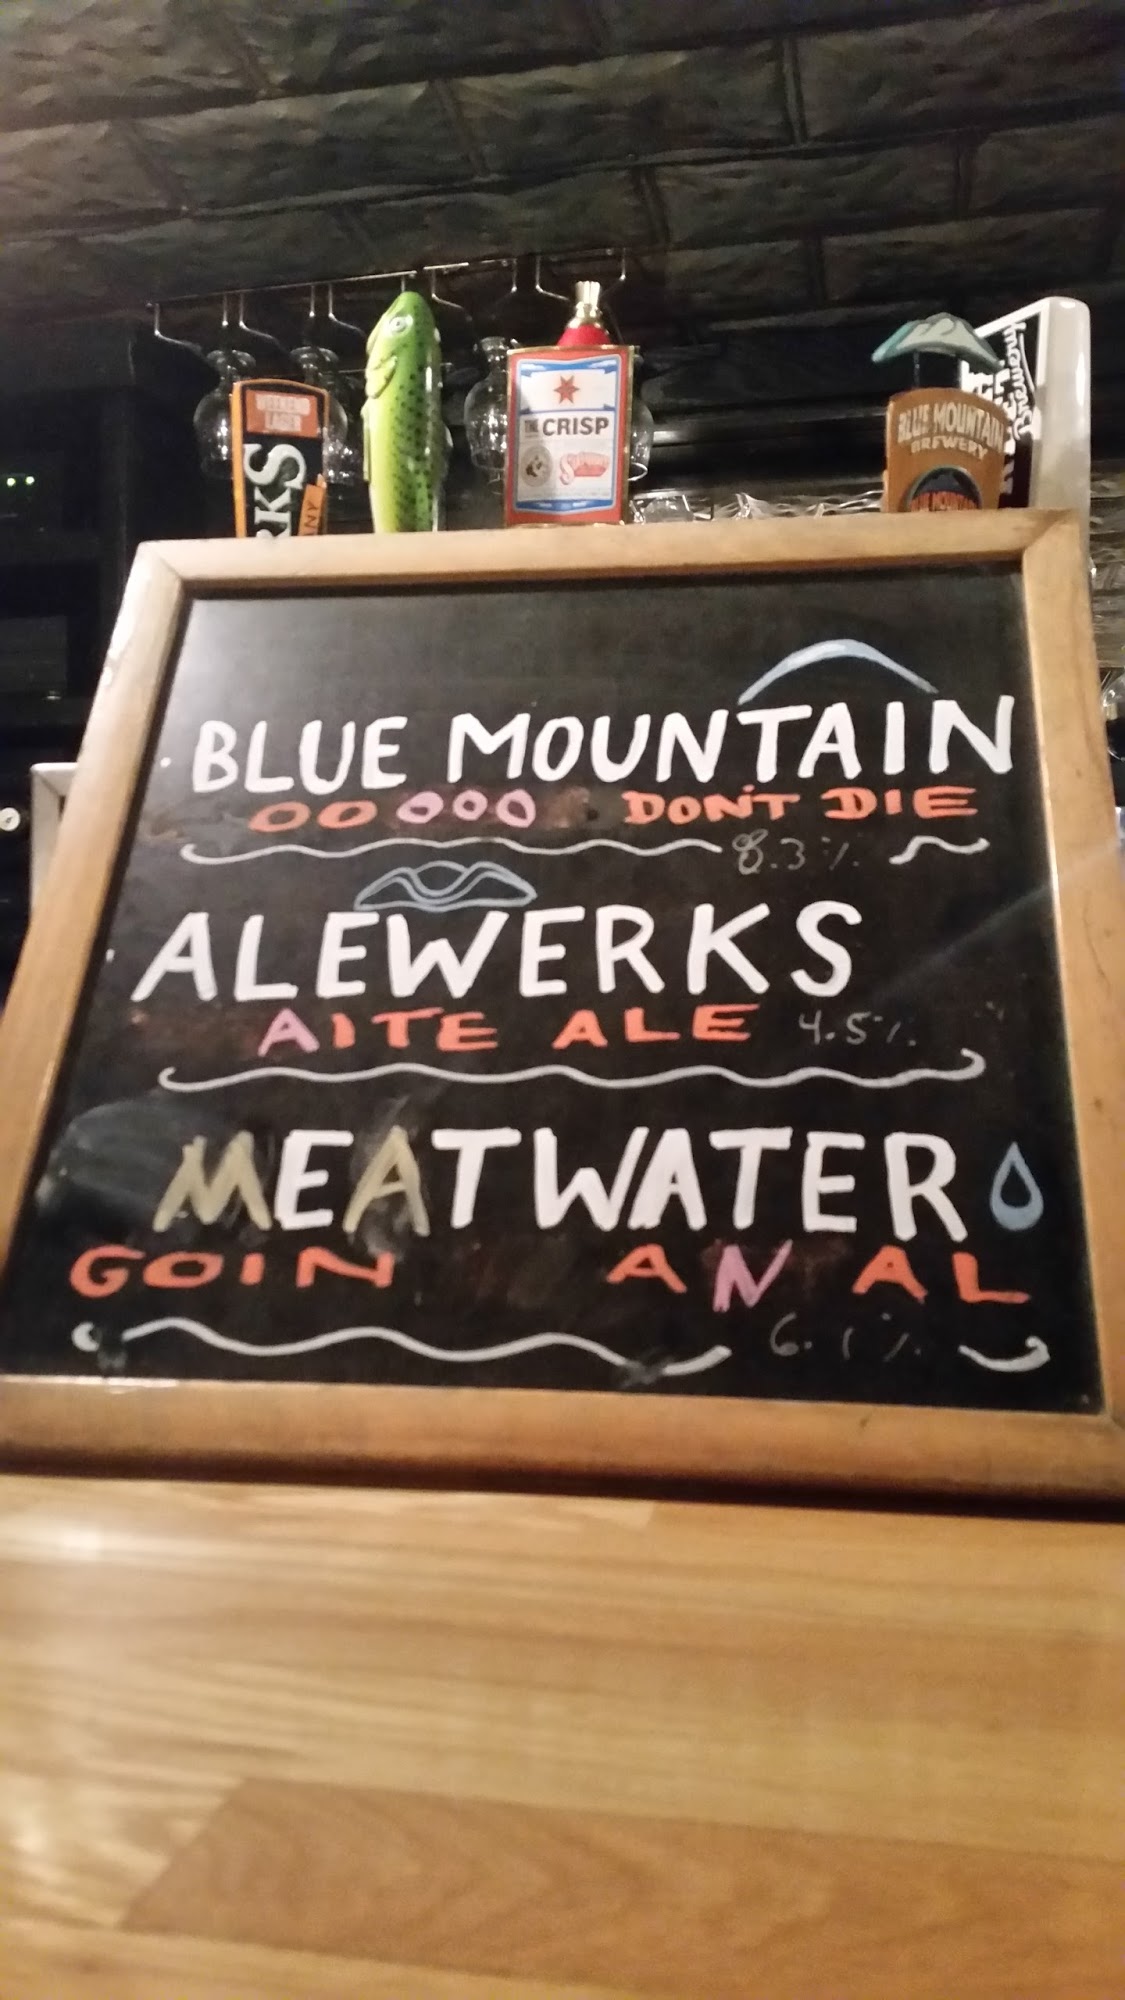 WEEKEND
LAGER
RKS
ANY
THE CRISP
BLUE MOUNTAIN
BREWERY
BLUE MOUNTAIN
BLUE MOUNTAIN
OO OOO DON'T DIE
8.3%
ALEWERKS
AITE ALE 4.5%
MEATWATER
GOIN ANAL
6.1%